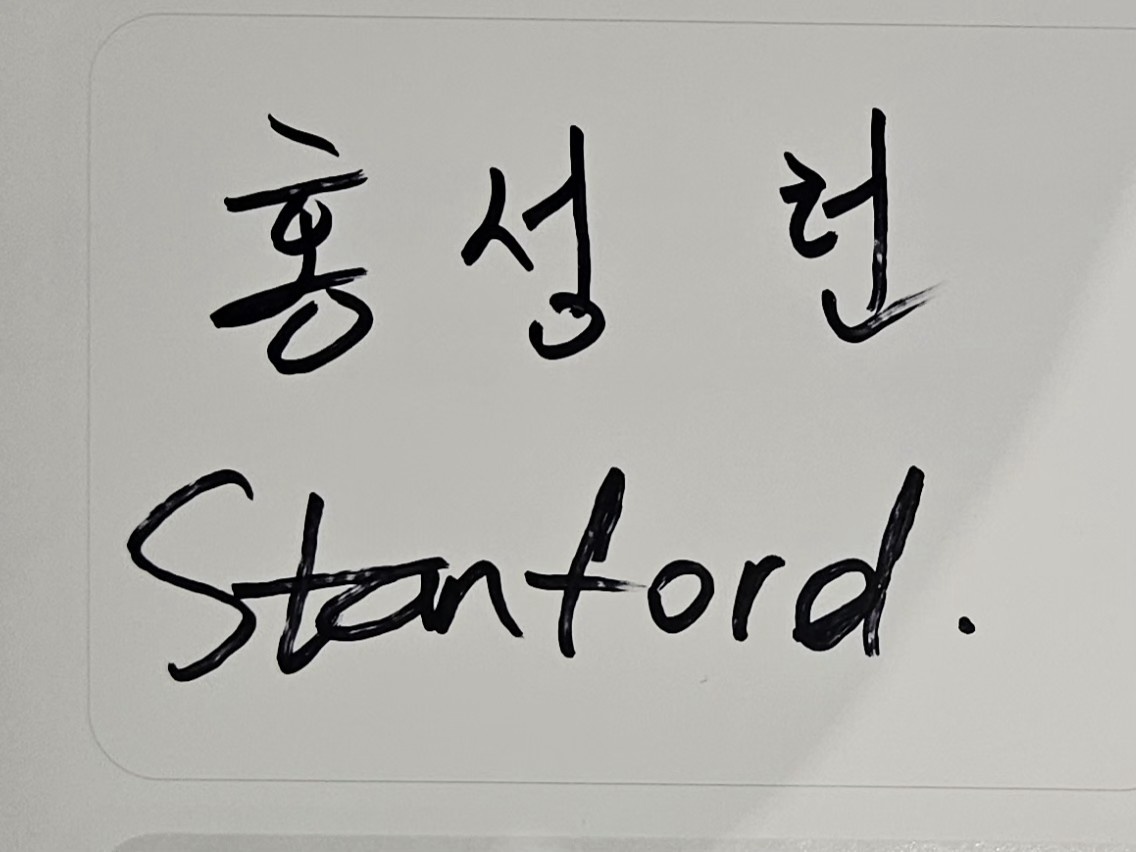 홍성헌
Stanford.